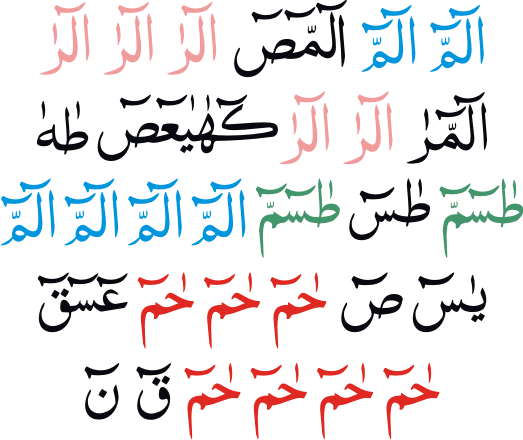 الٓمٓ الٓمٓ الٓمٓصٓ الٓرٰ الٓرٰ الٓرٰ
الٓمٓرٰ الٓرٰ الٓرٰ كٓهٰيٰعٓصٓ طٰهٰ
طٰسٓمٓ طٰسٓ طٰسٓمٓ الٓمٓ الٓمٓ الٓمٓ الٓمٓ
يٰسٓ صٓ حٰمٓ حٰمٓ حٰمٓ عٓسٓقٓ
حٰمٓ حٰمٓ حٰمٓ حٰمٓ قٓ نٓ